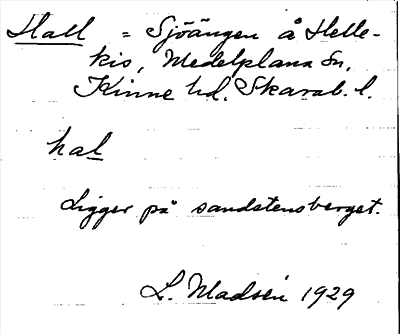 Hall = Sjöängen å Helle-
kis, Medelplana Sn,
Kinne hd. Skarab. l.
hal
Ligger på sandstensberget.
L. Madsén 1929